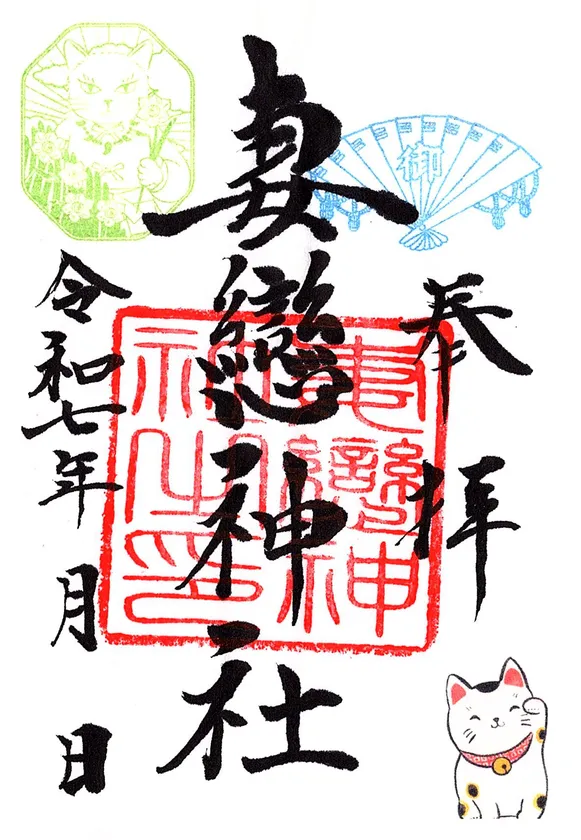 奉拝
妻戀神社
妻戀神社之印
御
令和七年 月 日